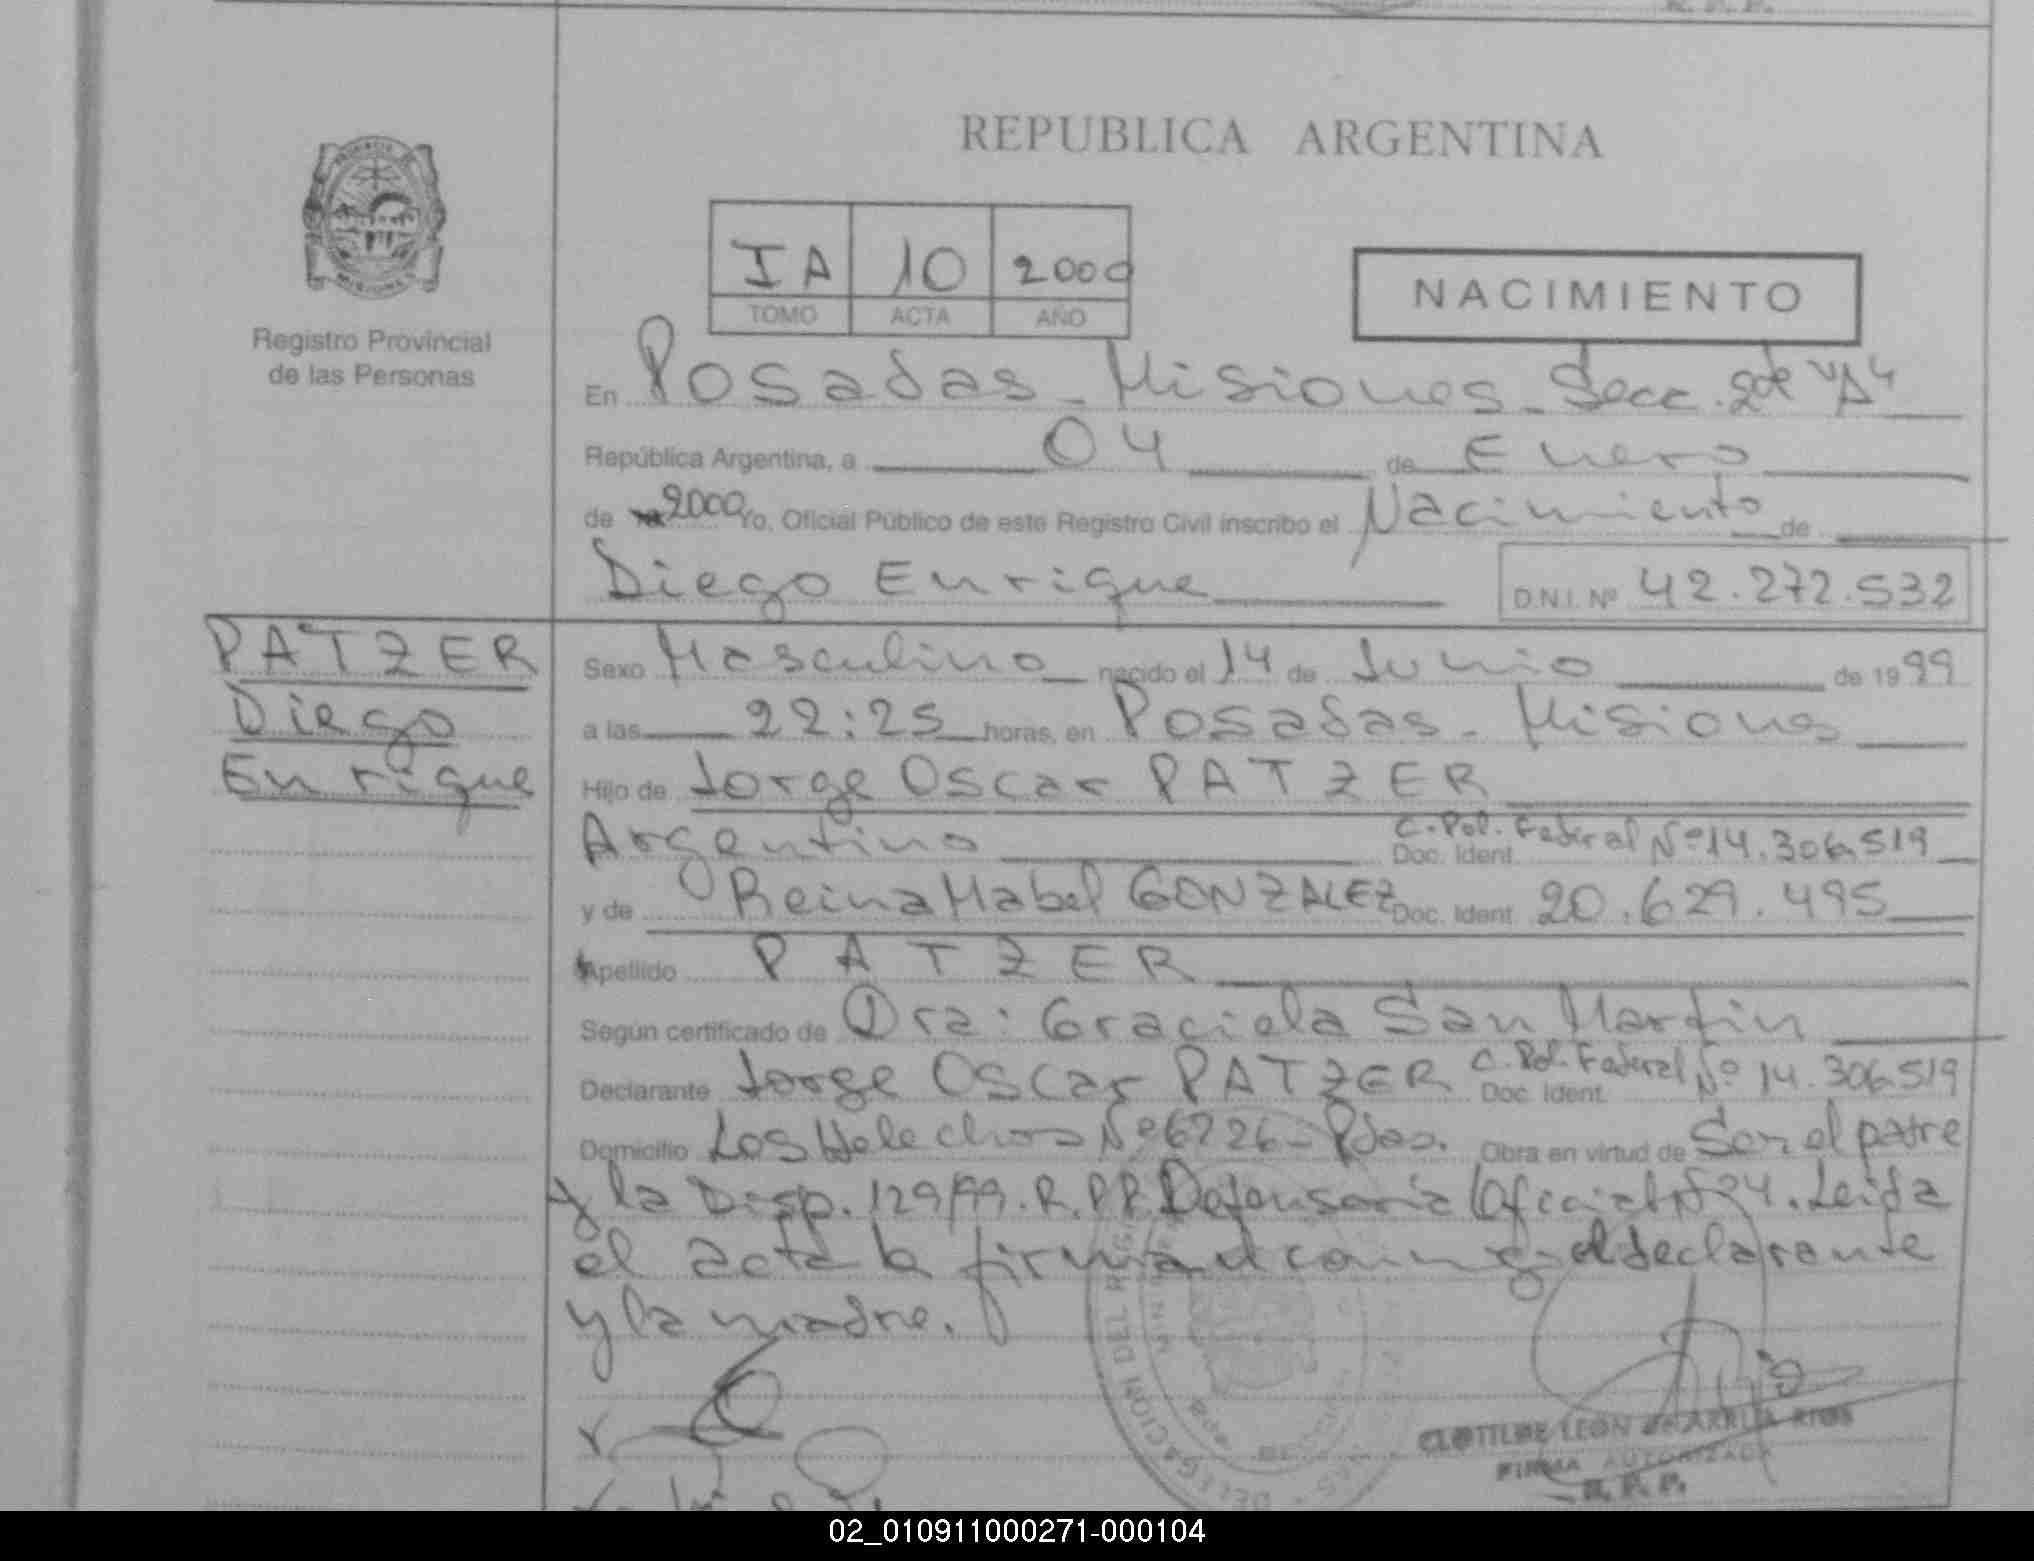 REPUBLICA ARGENTINA
PROVINCIA DE
MISIONES
Registro Provincial
de las Personas
IA 10 2000
TOMO ACTA AÑO
NACIMIENTO
En Posadas - Misiones - Secc. 2de "A"
República Argentina, a 04 de Enero
de 2000 Yo, Oficial Público de este Registro Civil inscribo el Nacimiento de
Diego Enrique D.N.I. Nº 42.272.532
PATZER
Diego
Enrique
Sexo Masculino nacido el 14 de Junio de 1999
a las 22:25 horas, en Posadas - Misiones
Hijo de Jorge Oscar PATZER
Argentino Doc. Ident. C. Pol. Federal Nº 14.306.519
y de Reina Mabel GONZALEZ Doc. Ident. 20.629.495
Apellido PATZER
Según certificado de Dra: Graciela San Martin
Declarante Jorge Oscar PATZER Doc. Ident. C. Pol. Federal Nº 14.306.519
Domicilio Los Helechos Nº 6226 - Pdas. Obra en virtud de Ser el padre
y la Disp. 129/99. R.P.P. Defensoría Oficial Nº 4. Leida
el acta la firman conmigo el declarante
y la madre.
DELEGACION DEL
CLOTILDE LEON de ARRUA RIOS
FIRMA AUTORIZADA
R. P. P.
02_010911000271-000104